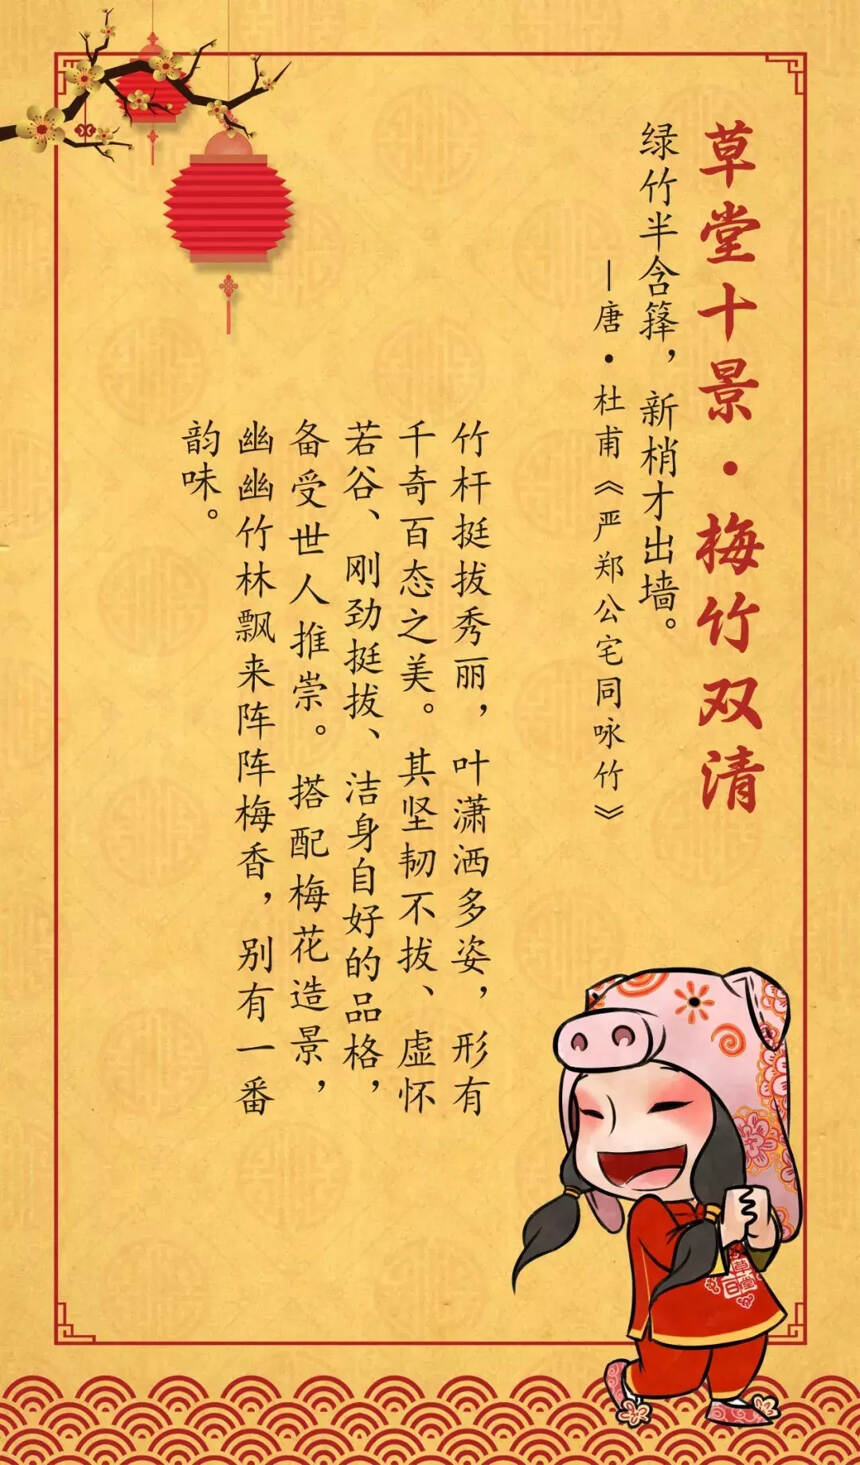 草堂十景·梅竹双清
绿竹半含箨，新梢才出墙。
—唐·杜甫《严郑公宅同咏竹》
竹杆挺拔秀丽，叶潇洒多姿，形有
千奇百态之美。其坚韧不拔、虚怀
若谷、刚劲挺拔、洁身自好的品格，
备受世人推崇。搭配梅花造景，
幽幽竹林飘来阵阵梅香，别有一番
韵味。